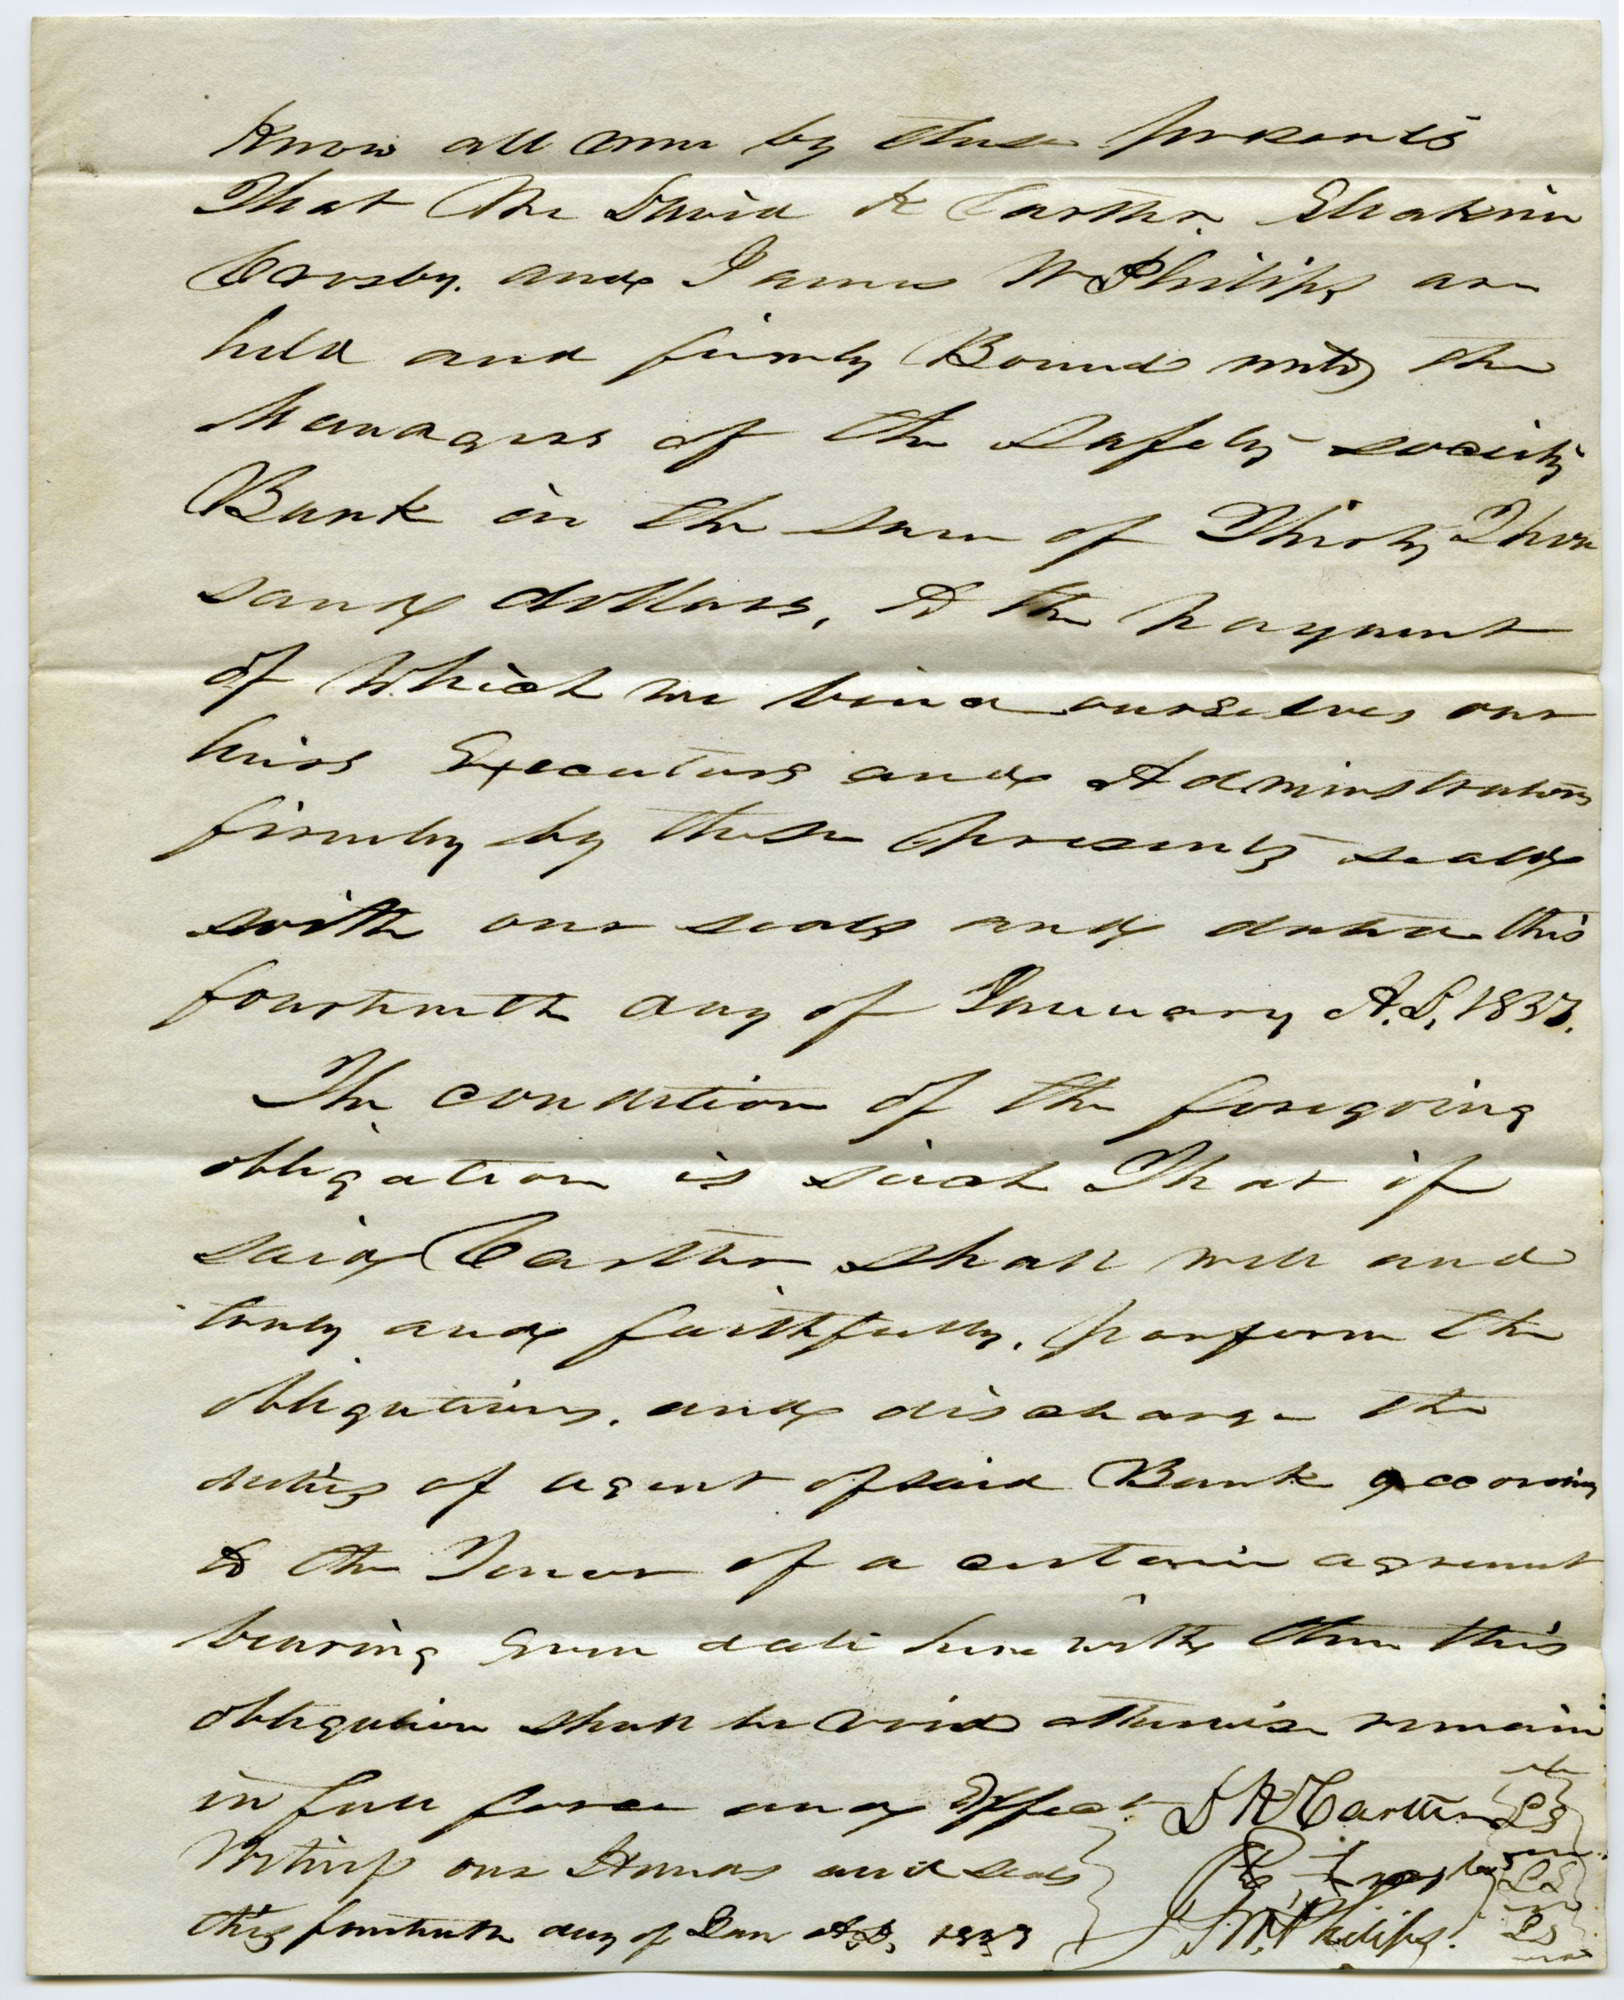 Know all men by these presents
That We David K Cartter. Eliakim
Crosby. and James W Philips are
held and firmly Bound unto the
Managers of the Safety society
Bank in the sum of Thirty Thou
sand dollars, to the payment
of Which we bind ourselves our
heirs Executors and Adminstrators
firmly by these presents seald
with our seals and dated this
fourteenth day of January A.D, 1837.
The condition of the foregoing
obligation is such That if
said Cartter shall well and
truly and faithfully. perform the
obligations. and discharge the
duties of agent of said Bank according
to the Tenor of a certain agreement
bearing Even date here with then this
obligation shall be void otherwise remain
in full force and Effect. D K Cartter LS
Witness our Hands and seals E Crosby LS
this fourteenth day of Jan A.D, 1837 J W. Philips. LS